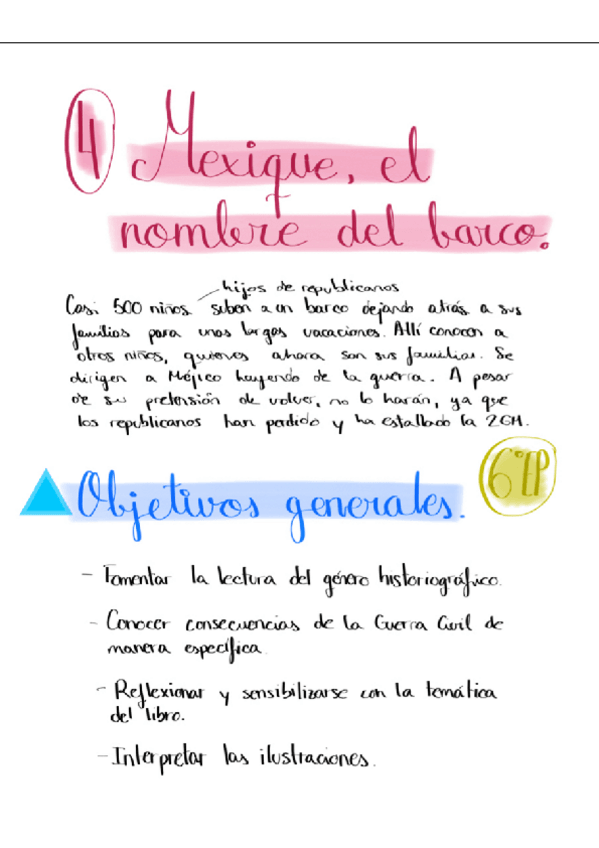 4 Mexique, el
nombre del barco.
hijos de republicanos
Casi 500 niños suben a un barco dejando atrás a sus
familias para unas largas vacaciones. Allí conocen a
otros niños, quienes ahora son sus familias. Se
dirigen a Méjico huyendo de la guerra. A pesar
de su pretensión de volver, no lo harán, ya que
los republicanos han perdido y ha estallado la 2GM.
Objetivos generales. 6ºEP
- Fomentar la lectura del género historiográfico.
- Conocer consecuencias de la Guerra Civil de
manera específica.
- Reflexionar y sensibilizarse con la temática
del libro.
- Interpretar las ilustraciones.